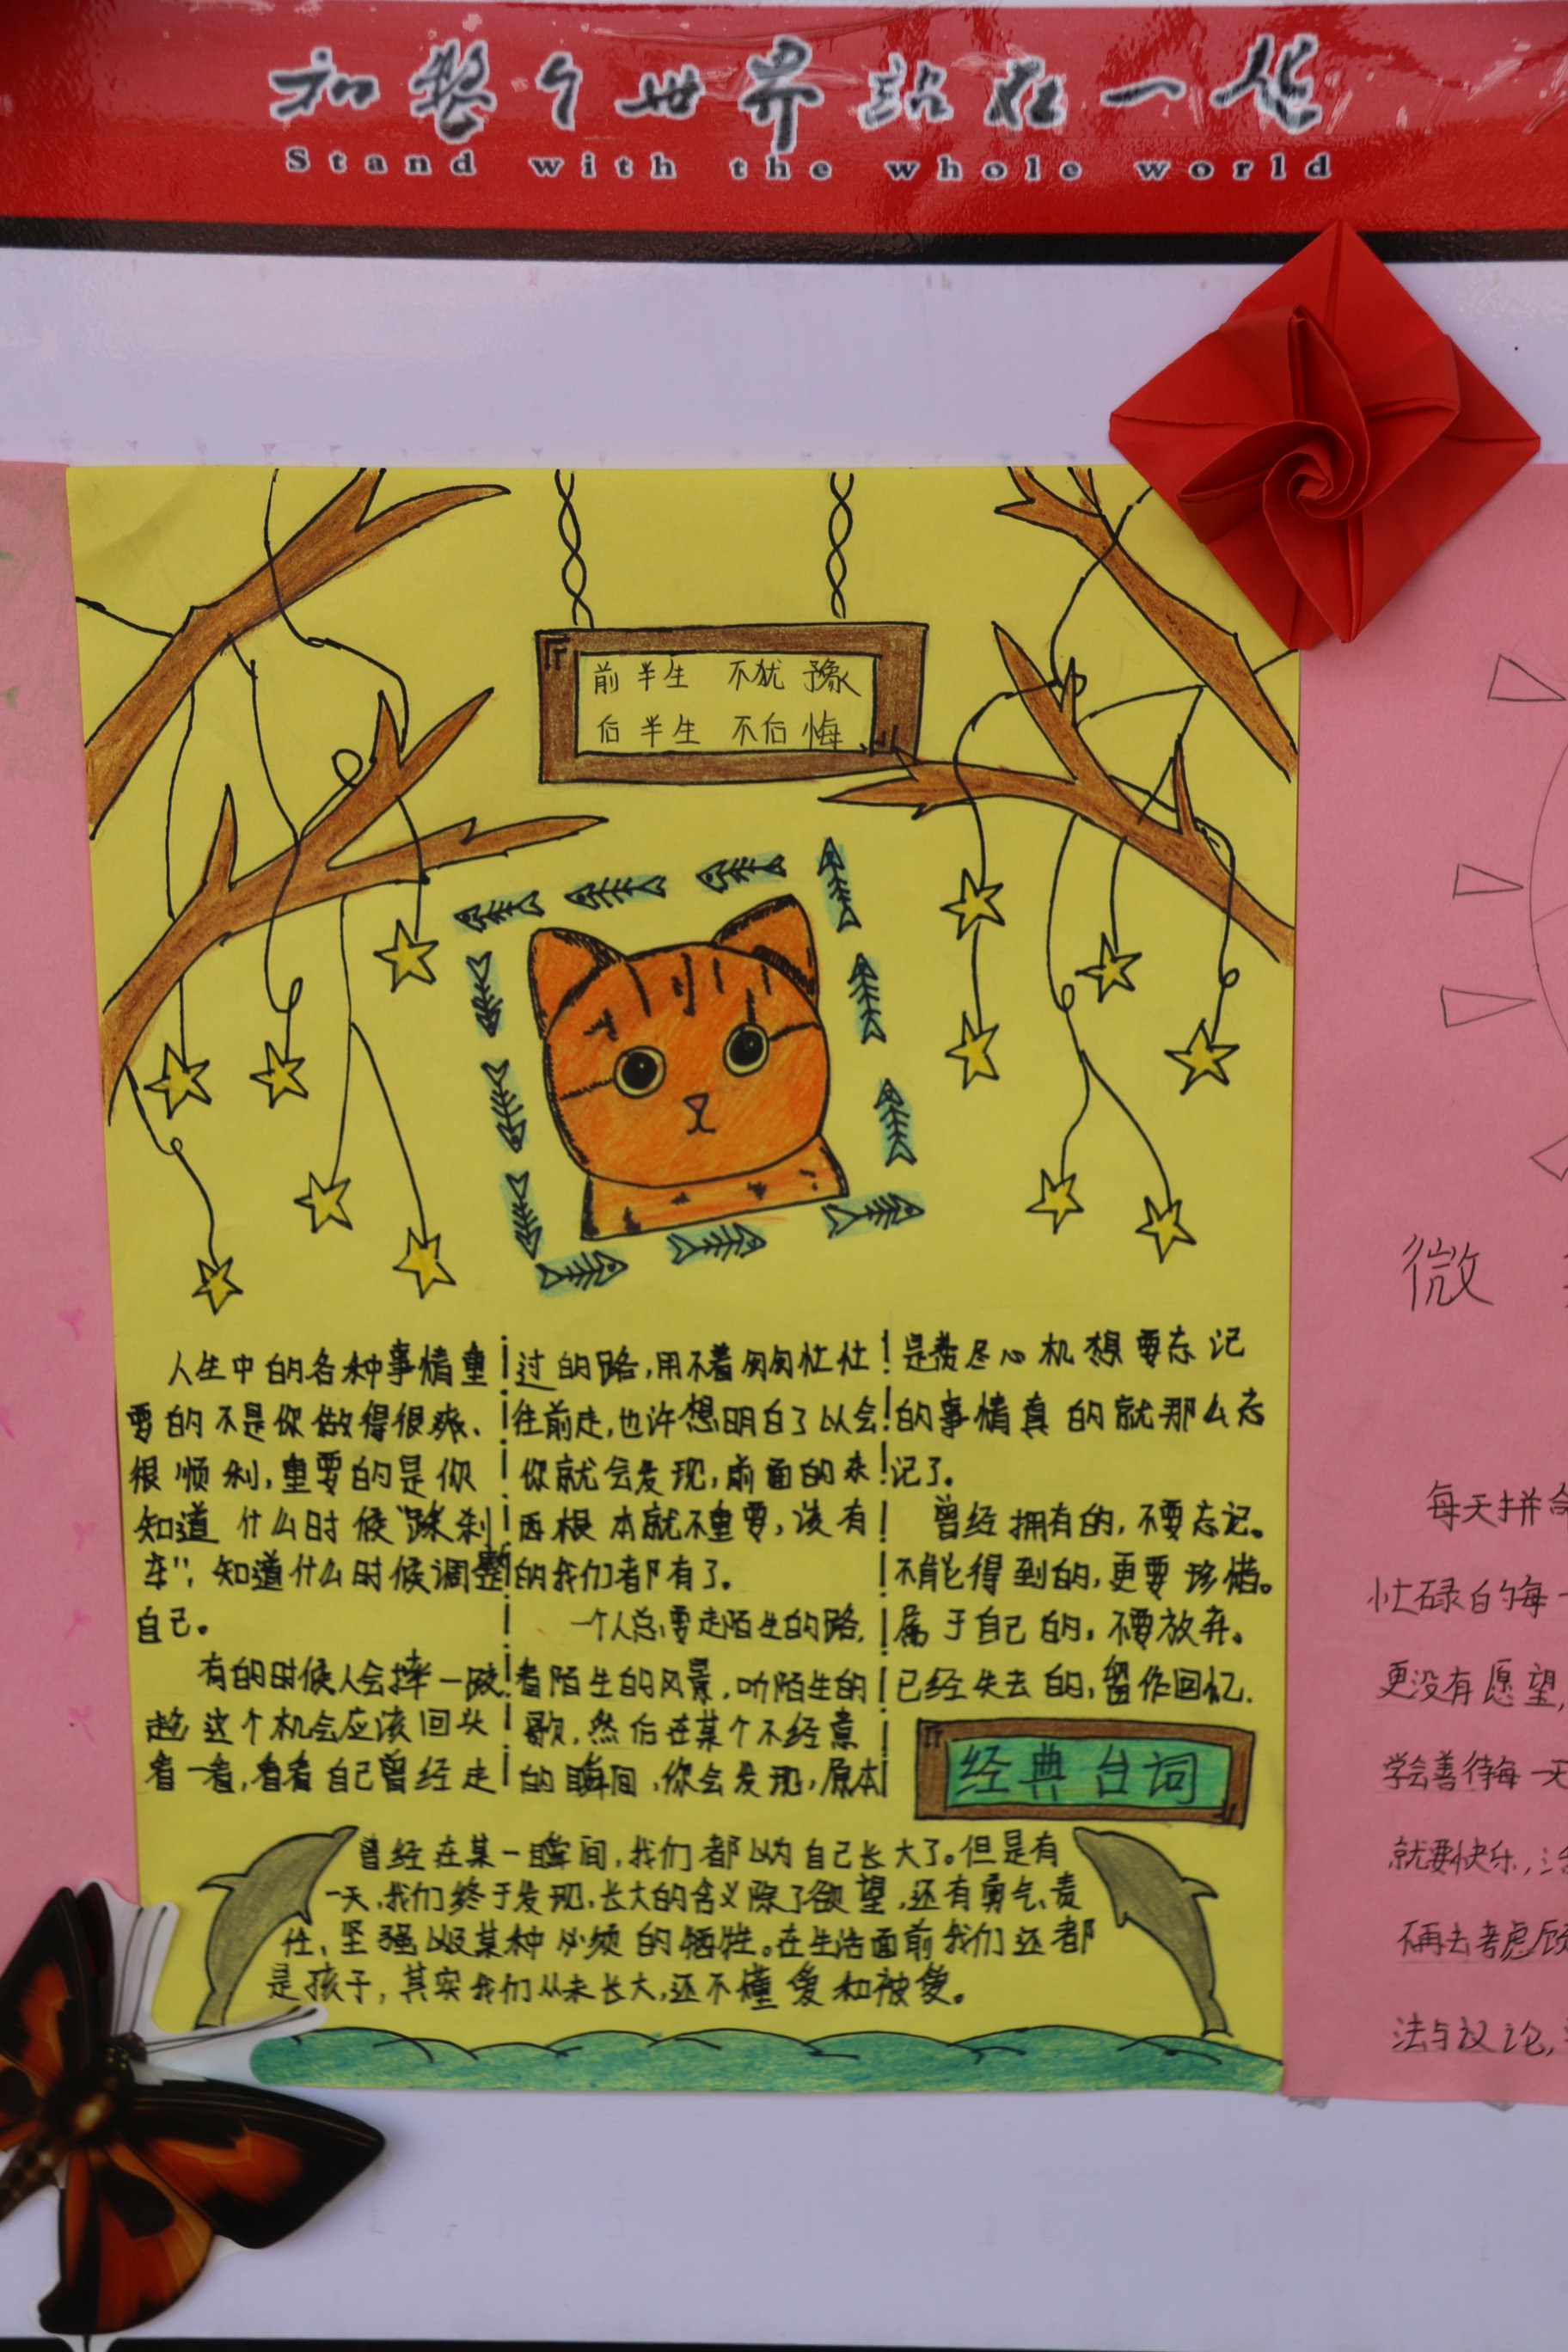 和整个世界站在一起
Stand with the whole world
前半生 不犹豫
后半生 不后悔
人生中的各种事情重
要的不是你做得很爽、
很顺利,重要的是你
知道什么时候“踩刹
车”,知道什么时候调整
自己。
有的时候人会摔一跤
趁这个机会应该回头
看一看,看看自己曾经走
过的路,用不着匆匆忙忙
往前走,也许想明白了以会
你就会发现,前面的东
西根本就不重要,该有
的我们都有了。
一个人总要走陌生的路,
看陌生的风景,听陌生的
歌,然后在某个不经意
的瞬间,你会发现,原本
是费尽心机想要忘记
的事情真的就那么忘
记了。
曾经拥有的,不要忘记。
不能得到的,更要珍惜。
属于自己的,不要放弃。
已经失去的,留作回忆.
经典台词
曾经在某一瞬间,我们都以为自己长大了。但是有
一天,我们终于发现,长大的含义除了欲望,还有勇气、责
任、坚强以及某种必须的牺牲。在生活面前我们还都
是孩子,其实我们从未长大,还不懂爱和被爱。
微
每天拼命
忙碌的每一
更没有愿望,
学会善待每一天
就要快乐,
不再去考虑
法与议论,